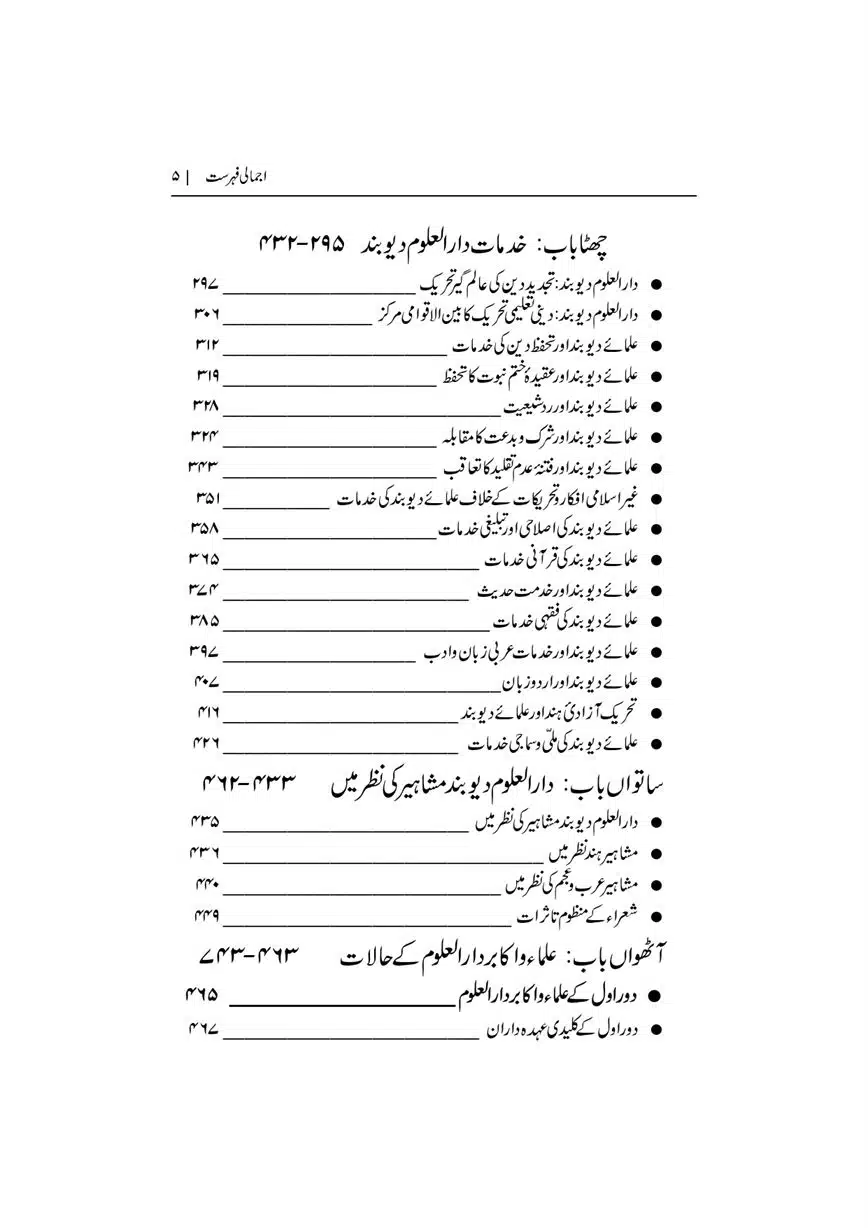 اجمالی فہرست | ۵
چھٹا باب: خدمات دارالعلوم دیوبند ۲۹۵–۴۳۲
● دارالعلوم دیوبند: تجدید دین کی عالم گیر تحریک ۲۹۷
● دارالعلوم دیوبند: دینی تعلیمی تحریک کا بین الاقوامی مرکز ۳۰۶
● علمائے دیوبند اور تحفظ دین کی خدمات ۳۱۲
● علمائے دیوبند اور عقیدۂ ختم نبوت کا تحفظ ۳۱۹
● علمائے دیوبند اور رد شیعیت ۳۲۸
● علمائے دیوبند اور شرک و بدعت کا مقابلہ ۳۲۴
● علمائے دیوبند اور فتنۂ عدم تقلید کا تعاقب ۳۴۳
● غیر اسلامی افکار و تحریکات کے خلاف علمائے دیوبند کی خدمات ۳۵۱
● علمائے دیوبند کی اصلاحی اور تبلیغی خدمات ۳۵۸
● علمائے دیوبند کی قرآنی خدمات ۳۶۵
● علمائے دیوبند اور خدمت حدیث ۳۷۴
● علمائے دیوبند کی فقہی خدمات ۳۸۵
● علمائے دیوبند اور خدمات عربی زبان و ادب ۳۹۷
● علمائے دیوبند اور اردو زبان ۴۰۷
● تحریک آزادیٔ ہند اور علمائے دیوبند ۴۱۶
● علمائے دیوبند کی ملّی و سماجی خدمات ۴۲۶
ساتواں باب: دارالعلوم دیوبند مشاہیر کی نظر میں ۴۳۳–۴۶۲
● دارالعلوم دیوبند مشاہیر کی نظر میں ۴۳۵
● مشاہیر ہند نظر میں ۴۳۶
● مشاہیر عرب و عجم کی نظر میں ۴۴۰
● شعراء کے منظوم تاثرات ۴۴۹
آٹھواں باب: علماء و اکابر دارالعلوم کے حالات ۴۶۳–۷۴۳
● دور اول کے علماء و اکابر دارالعلوم ۴۶۵
● دور اول کے کلیدی عہدہ داران ۴۶۷